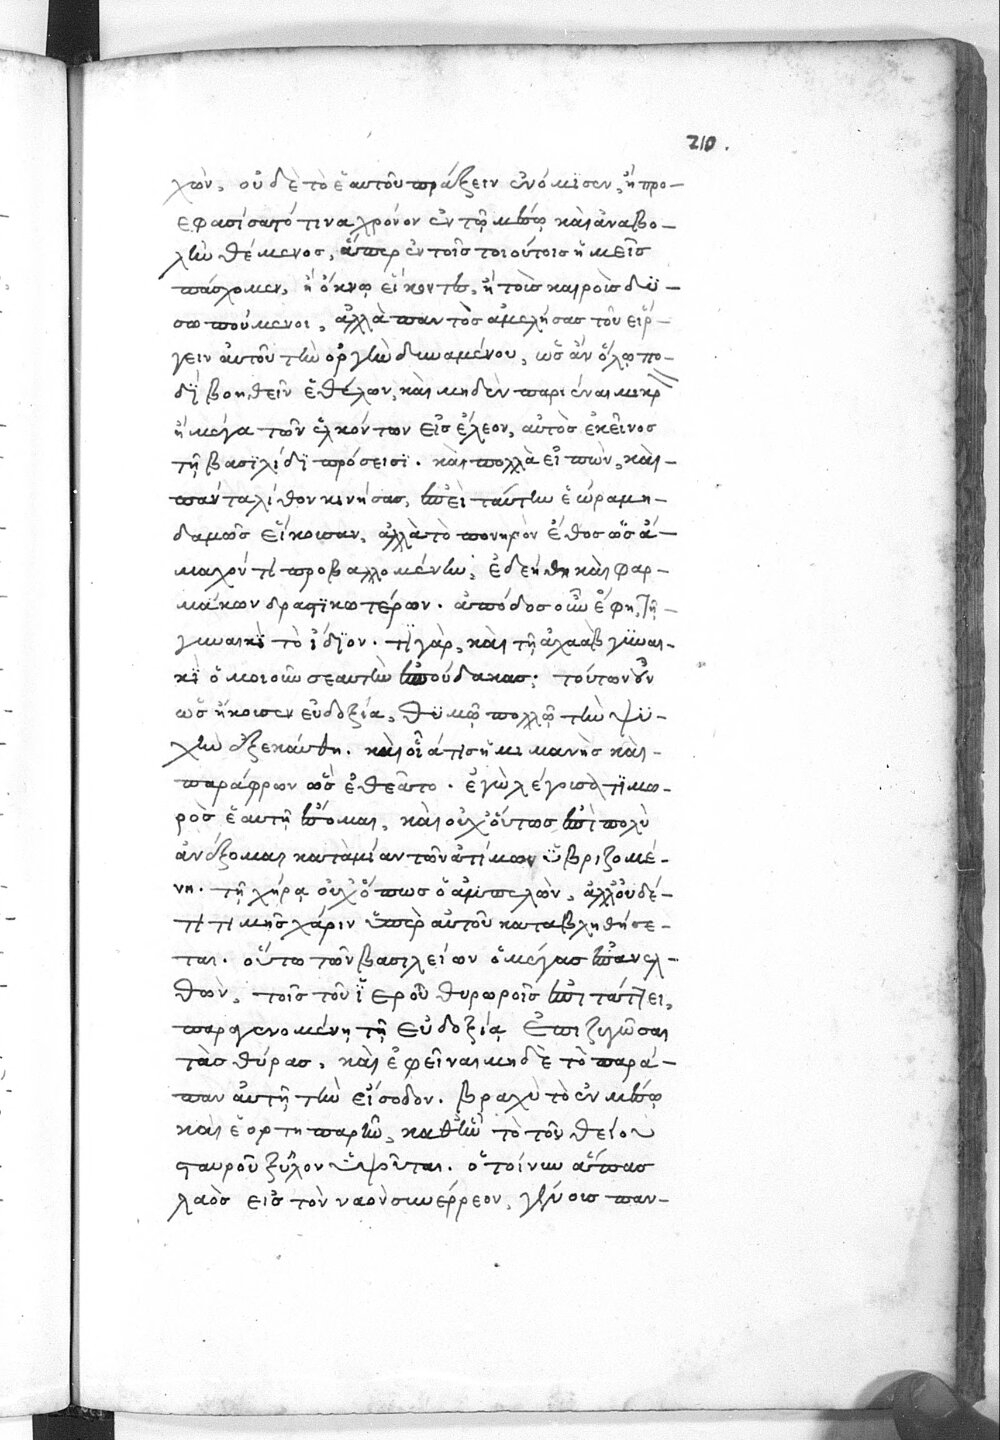 210.
χῶν, οὐδὲ τὸ ἑαυτοῦ πράξειν ἐνόμισεν, ἢ προ-
εφασίσατό τινα χρόνον ἐν τῷ μέσῳ καὶ ἀναβο-
λὴν θέμενος, ἅπερ ἐν τοῖς τοιούτοις ἡμεῖς
πάσχομεν, ἢ ὄκνῳ εἴκοντες, ἢ τοῖς καιροῖς δυ-
σωπούμενοι, ἀλλὰ παντὸς ἀμελήσας τοῦ εἴρ-
γειν αὐτοῦ τὴν ὁρμὴν δυναμένου, ὡς ἂν ὅλῳ πο-
δὶ βοηθεῖν ἐθέλων, καὶ μηδὲν παριέναι μικρ
ἢ μέγα τῶν ἑλκόντων εἰς ἔλεον, αὐτὸς ἐκεῖνος
τῇ βασιλίδι πρόσεισι. καὶ πολλὰ εἰπὼν, καὶ
πάντα λίθον κινήσας, ἐπεὶ ταύτην ἑώρα μη-
δαμῶς εἴκουσαν, ἀλλὰ τὸ πονηρὸν ἔθος ὡς ἄ-
μαχόν τι προβαλλομένην, ἐδεήθη καὶ φαρ-
μάκων δραστικωτέρων. ἀπόδος οὖν ἔφη, τῇ
γυναικὶ τὸ ἴδιον. τί γὰρ, καὶ τῇ ἀχαὰβ γυναι-
κὶ ὁμοιοῦν σεαυτὴν ἐσπούδακας; τούτων οὖν
ὡς ἤκουσεν εὐδοξία, θυμῷ πολλῷ τὴν ψυ-
χὴν ἐξεκαύθη. καὶ οἷά τις ἡμιμανὴς καὶ
παράφρων ὡς ἐθεᾶτο. ἐγὼ λέγουσα τιμω-
ρὸς ἑαυτῇ ἔσομαι, καὶ οὐχ οὕτως ἐπὶ πολὺ
ἀνέξομαι κατὰ μίαν τῶν ἀτίμων ὑβριζομέ-
νη. τῇ χήρᾳ οὐχ ὅπως ὁ ἀμπελὼν, ἀλλ' οὐδέ-
τι τιμῆς χάριν ὑπὲρ αὐτοῦ καταβληθήσε-
ται. οὕτω τῶν βασιλείων ὁ μέγας ἐπανελ-
θὼν, τοῖς τοῦ ἱεροῦ θυρωροῖς ἐπιτάττει,
παραγενομένῃ τῇ εὐδοξίᾳ ἐπιζυγῶσαι
τὰς θύρας, καὶ ἐφεῖναι μηδὲ τὸ παρά-
παν αὐτῇ τὴν εἴσοδον. βραχὺ τὸ ἐν μέσῳ
καὶ ἑορτὴ παρῆν, καθ' ἣν τὸ τοῦ θείου
σταυροῦ ξύλον ὑψοῦται. ὅ τοίνυν ἅπας
λαὸς εἰς τὸν ναὸν συνέρρεον, γένους παν-